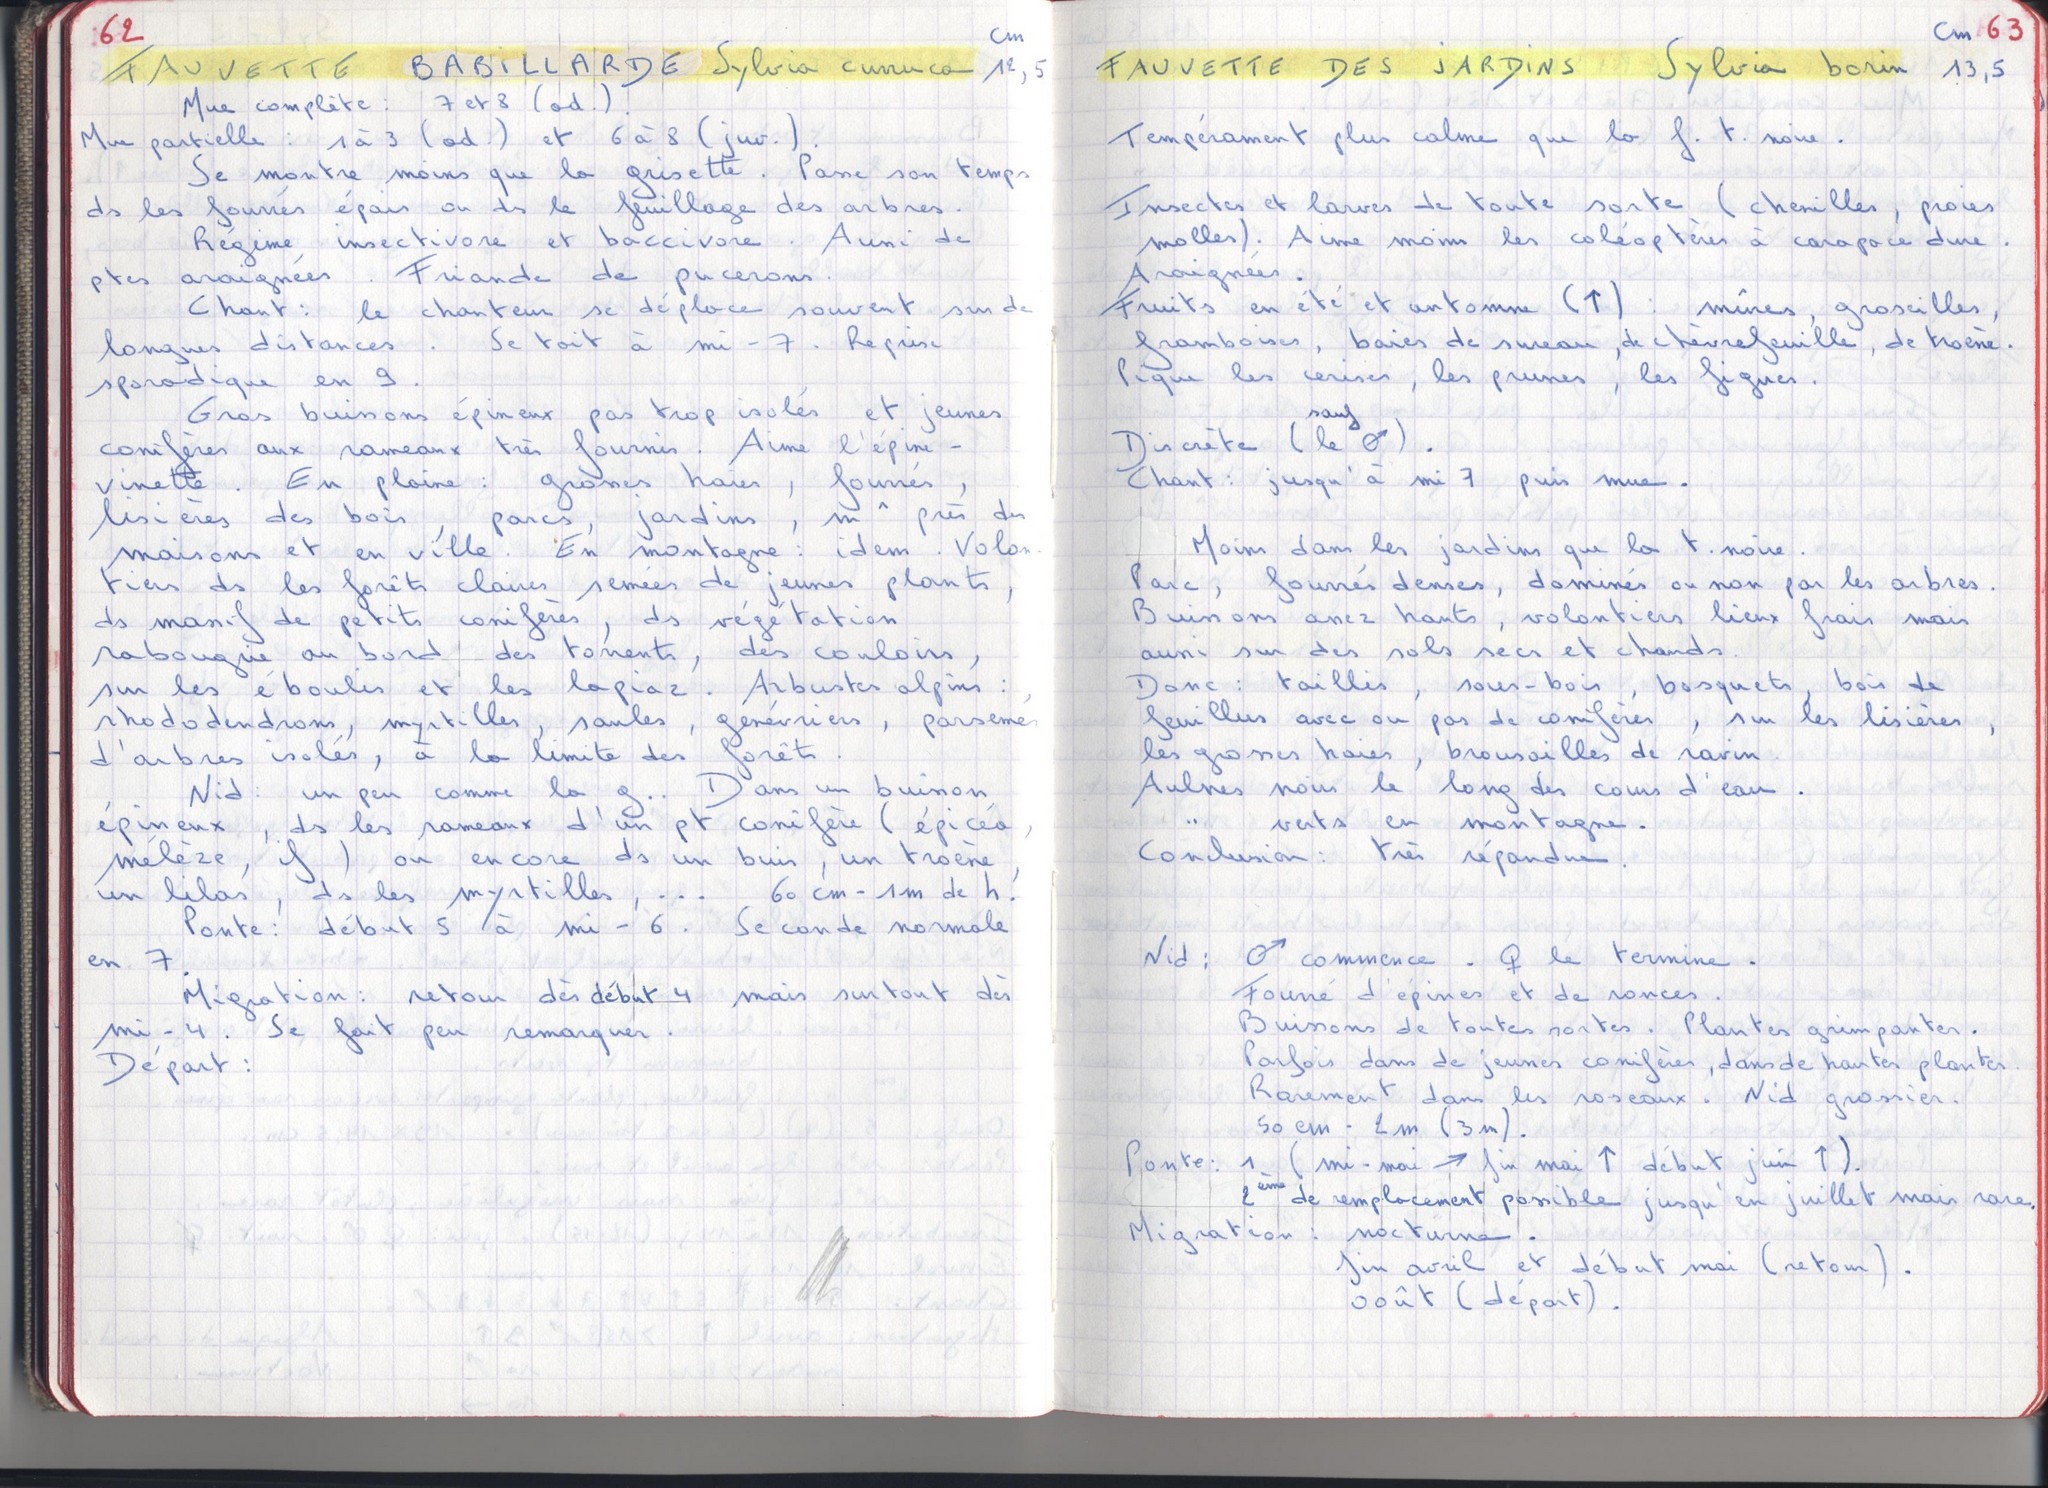 62
cm
FAUVETTE BABILLARDE Sylvia curruca 12,5
Mue complète : 7 et 8 (ad.)
Mue partielle : 1 à 3 (ad.) et 6 à 8 (juv.).
Se montre moins que la grisette. Passe son temps
ds les fourrés épais ou ds le feuillage des arbres.
Régime insectivore et baccivore. Aussi de
ptes araignées. Friande de pucerons.
Chant : le chanteur se déplace souvent sur de
longues distances. Se tait à mi-7. Reprise
sporadique en 9.
Gros buissons épineux pas trop isolés et jeunes
conifères aux rameaux très fournis. Aime l'épine-
vinette. En plaine : grosses haies, fourrés,
lisières des bois, parcs, jardins, m^ près des
maisons et en ville. En montagne : idem. Volon-
tiers ds les forêts claires semées de jeunes plants,
ds massif de petits conifères, ds végétation
rabougrie au bord des torrents, des couloirs,
sur les éboulis et les lapiaz. Arbustes alpins :
rhododendrons, myrtilles, saules, genévriers, parsemés
d'arbres isolés, à la limite des forêts.
Nid : un peu comme la g.. Dans un buisson
épineux, ds les rameaux d'un pt conifère (épicéa,
mélèze, if) ou encore ds un buis, un troène,
un lilas, ds les myrtilles, ... 60 cm - 1m de h.
Ponte : début 5 à mi-6. Seconde normale
en 7.
Migration : retour dès début 4 mais surtout dès
mi-4. Se fait peu remarquer.
Départ :
cm 63
FAUVETTE DES JARDINS Sylvia borin 13,5
Tempérament plus calme que la f. t. noire.
Insectes et larves de toute sorte (chenilles, proies
molles). Aime moins les coléoptères à carapace dure.
Araignées.
Fruits en été et automne (↑) : mûres, groseilles,
framboises, baies de sureau, de chèvrefeuille, de troène.
Pique les cerises, les prunes, les figues.
sauf
Discrète (le ♂).
Chant : jusqu'à mi 7 puis mue.
Moins dans les jardins que la t. noire.
Parc, fourrés denses, dominés ou non par les arbres.
Buissons assez hauts, volontiers lieux frais mais
aussi sur des sols secs et chauds.
Donc : taillis, sous-bois, bosquets, bois de
feuillus avec ou pas de conifères, sur les lisières,
les grosses haies, brousailles de ravin.
Aulnes noirs le long des cours d'eau.
" verts en montagne.
Conclusion : très répandue.
Nid : ♂ commence. ♀ le termine.
Fourré d'épines et de ronces.
Buissons de toutes sortes. Plantes grimpantes.
Parfois dans de jeunes conifères, dans de hautes plantes.
Rarement dans les roseaux. Nid grossier.
50 cm - 2 m (3m).
Ponte : 1 (mi-mai → fin mai ↑ début juin ↑).
2ème de remplacement possible jusqu'en juillet mais rare.
Migration : nocturne.
fin avril et début mai (retour).
août (départ).